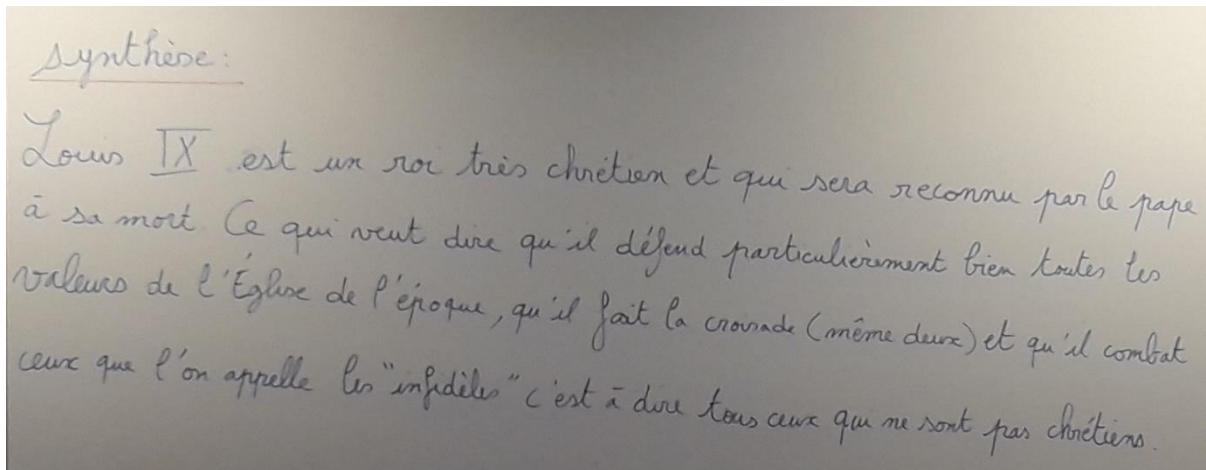 Synthèse :
Louis IX est un roi très chrétien et qui sera reconnu par le pape
à sa mort. Ce qui veut dire qu'il défend particulièrement bien toutes les
valeurs de l'Église de l'époque, qu'il fait la croisade (même deux) et qu'il combat
ceux que l'on appelle les "infidèles" c'est à dire tous ceux qui ne sont pas chrétiens.